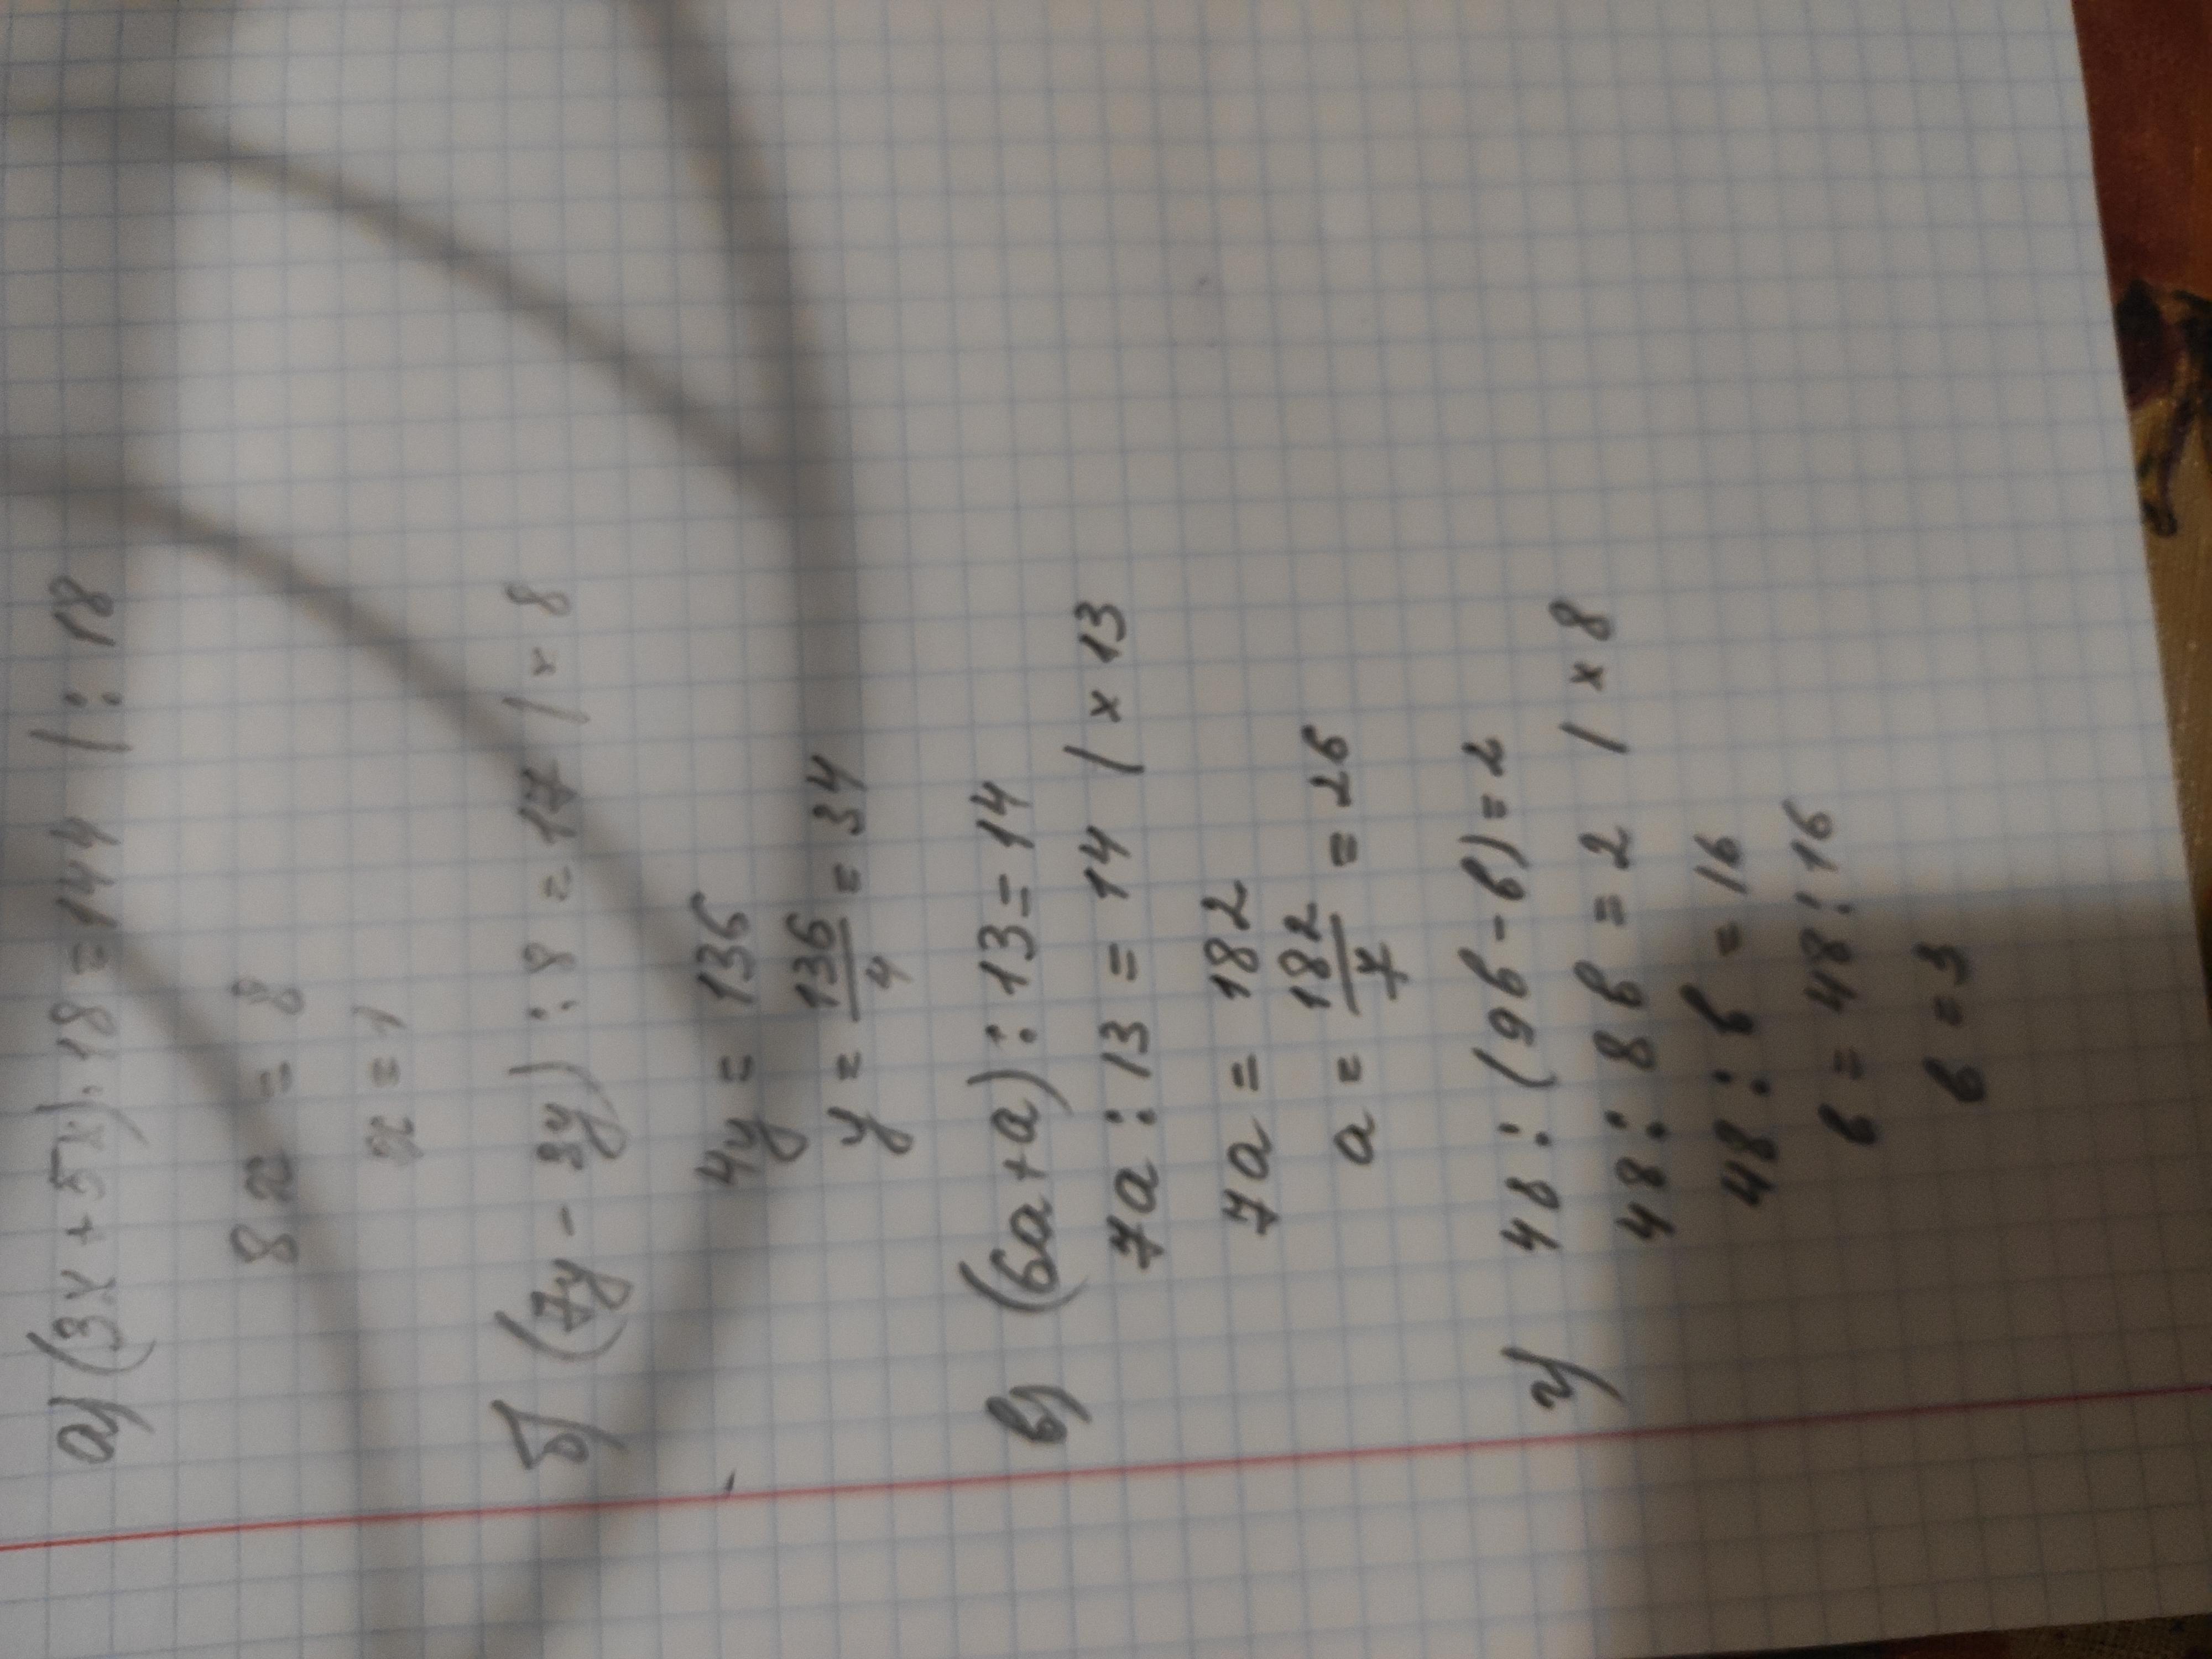 а) (3x + 5x) · 18 = 144 | : 18
8x = 8
x = 1
б) (7y - 3y) : 8 = 17 | × 8
4y = 136
y = 136/4 = 34
в) (6a + a) : 13 = 14
7a : 13 = 14 | × 13
7a = 182
a = 182/7 = 26
г) 48 : (9в - в) = 2
48 : 8в = 2 | × 8
48 : в = 16
в = 48 : 16
в = 3